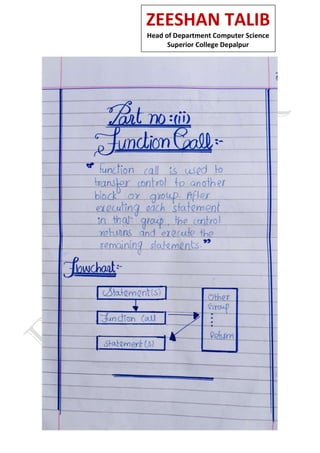 ZEESHAN TALIB
Head of Department Computer Science
Superior College Depalpur
Part no:(ii)
Function Call:-
“ function call is used to
transfer control to another
block or group. After
executing each statement
in that group, the control
returns and execute the
remaining statements.”
Flowchart:-
Statement(s)
Function Call
Statement(s)
Other
Group
Return